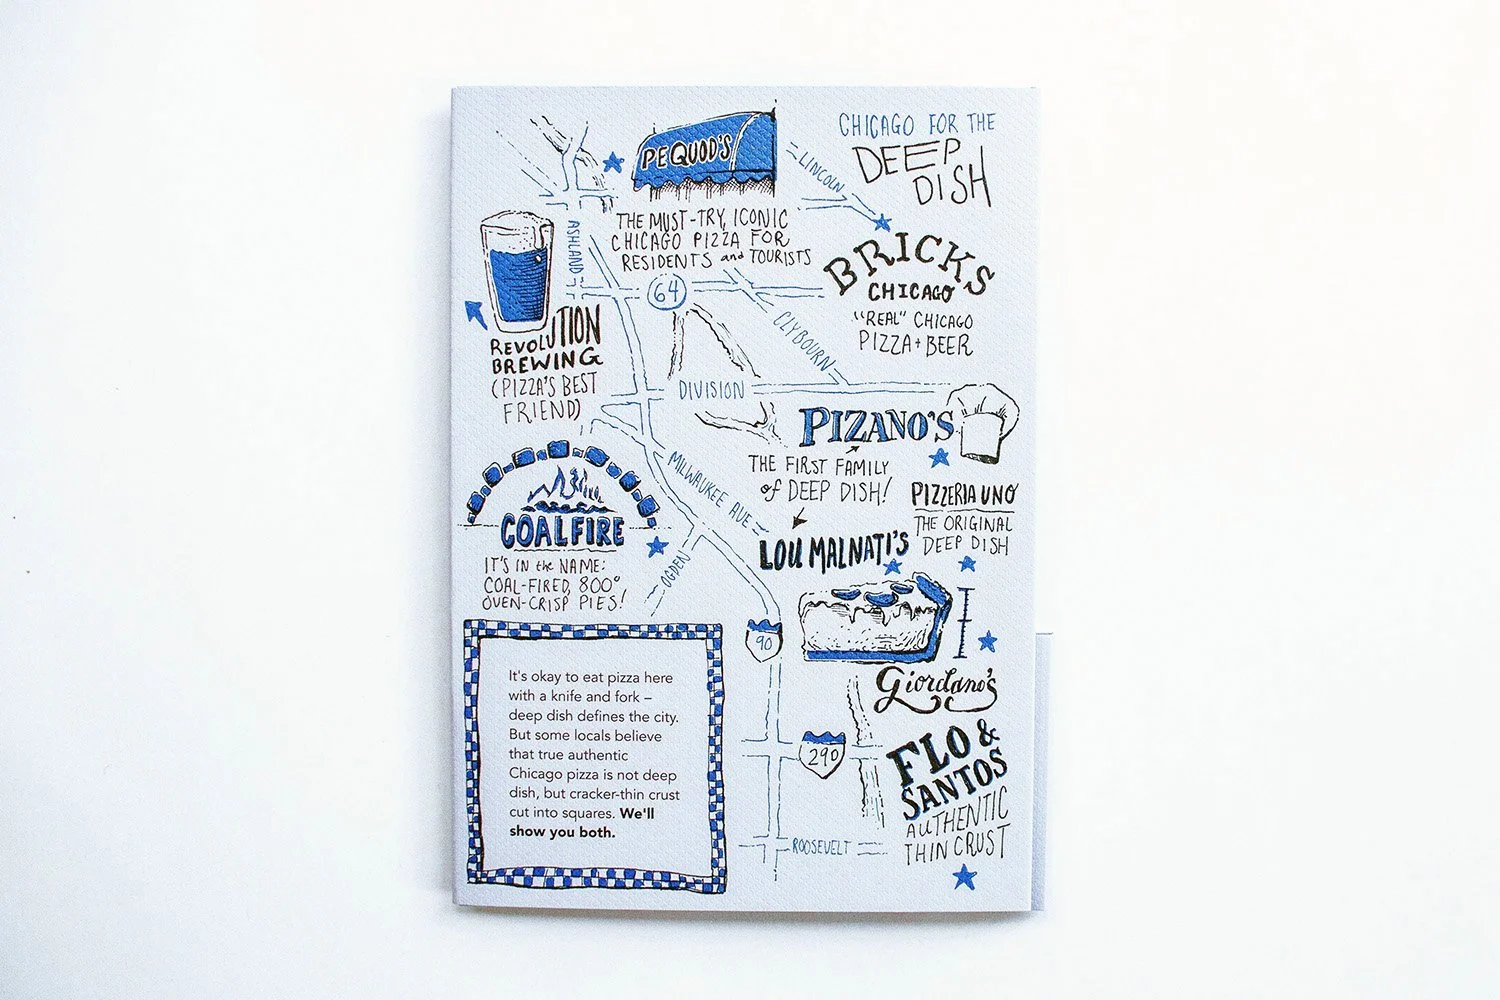 CHICAGO FOR THE
DEEP
DISH
PEQUOD'S
THE MUST-TRY, ICONIC
CHICAGO PIZZA FOR
RESIDENTS and TOURISTS
LINCOLN
ASHLAND
BRICKS
CHICAGO
"REAL" CHICAGO
PIZZA + BEER
64
CLYBOURN
REVOLUTION
BREWING
(PIZZA'S BEST
FRIEND)
DIVISION
PIZANO'S
THE FIRST FAMILY
of DEEP DISH!
MILWAUKEE AVE
PIZZERIA UNO
THE ORIGINAL
DEEP DISH
COALFIRE
IT'S IN the NAME:
COAL-FIRED, 800°
OVEN-CRISP PIES!
LOU MALNATI'S
OGDEN
90
Giordano's
It's okay to eat pizza here
with a knife and fork –
deep dish defines the city.
But some locals believe
that true authentic
Chicago pizza is not deep
dish, but cracker-thin crust
cut into squares. We'll
show you both.
290
FLO &
SANTOS
AUTHENTIC
THIN CRUST
ROOSEVELT